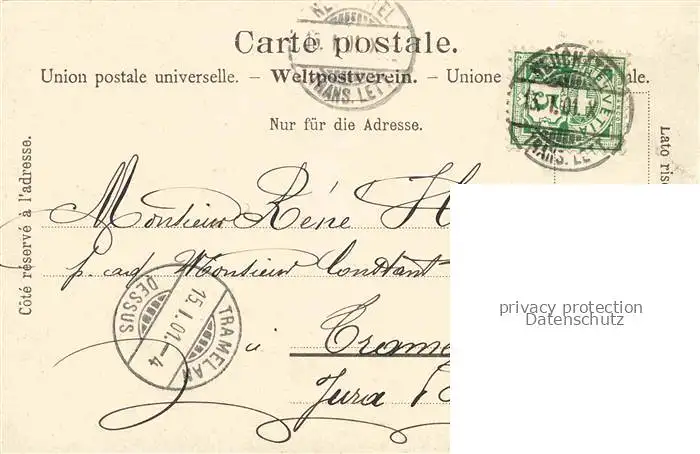 Carte postale.
Union postale universelle. – Weltpostverein. – Unione le.
Nur für die Adresse.
Côté réservé à l'adresse.
Lato ris
NE TEL
15. I. 01. X
TRANS. LETT.
HELVETIA
15. I. 01. X
TRANS. LETT.
Monsieur René H
p. ad Monsieur Constant
à Trame
Jura B
TRAMELAN
15. I. 01.–4
DESSUS
privacy protection
Datenschutz